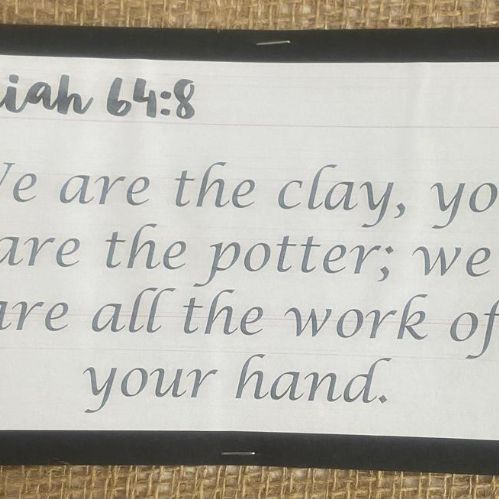 iah 64:8
We are the clay, yo
are the potter; we
are all the work of
your hand.